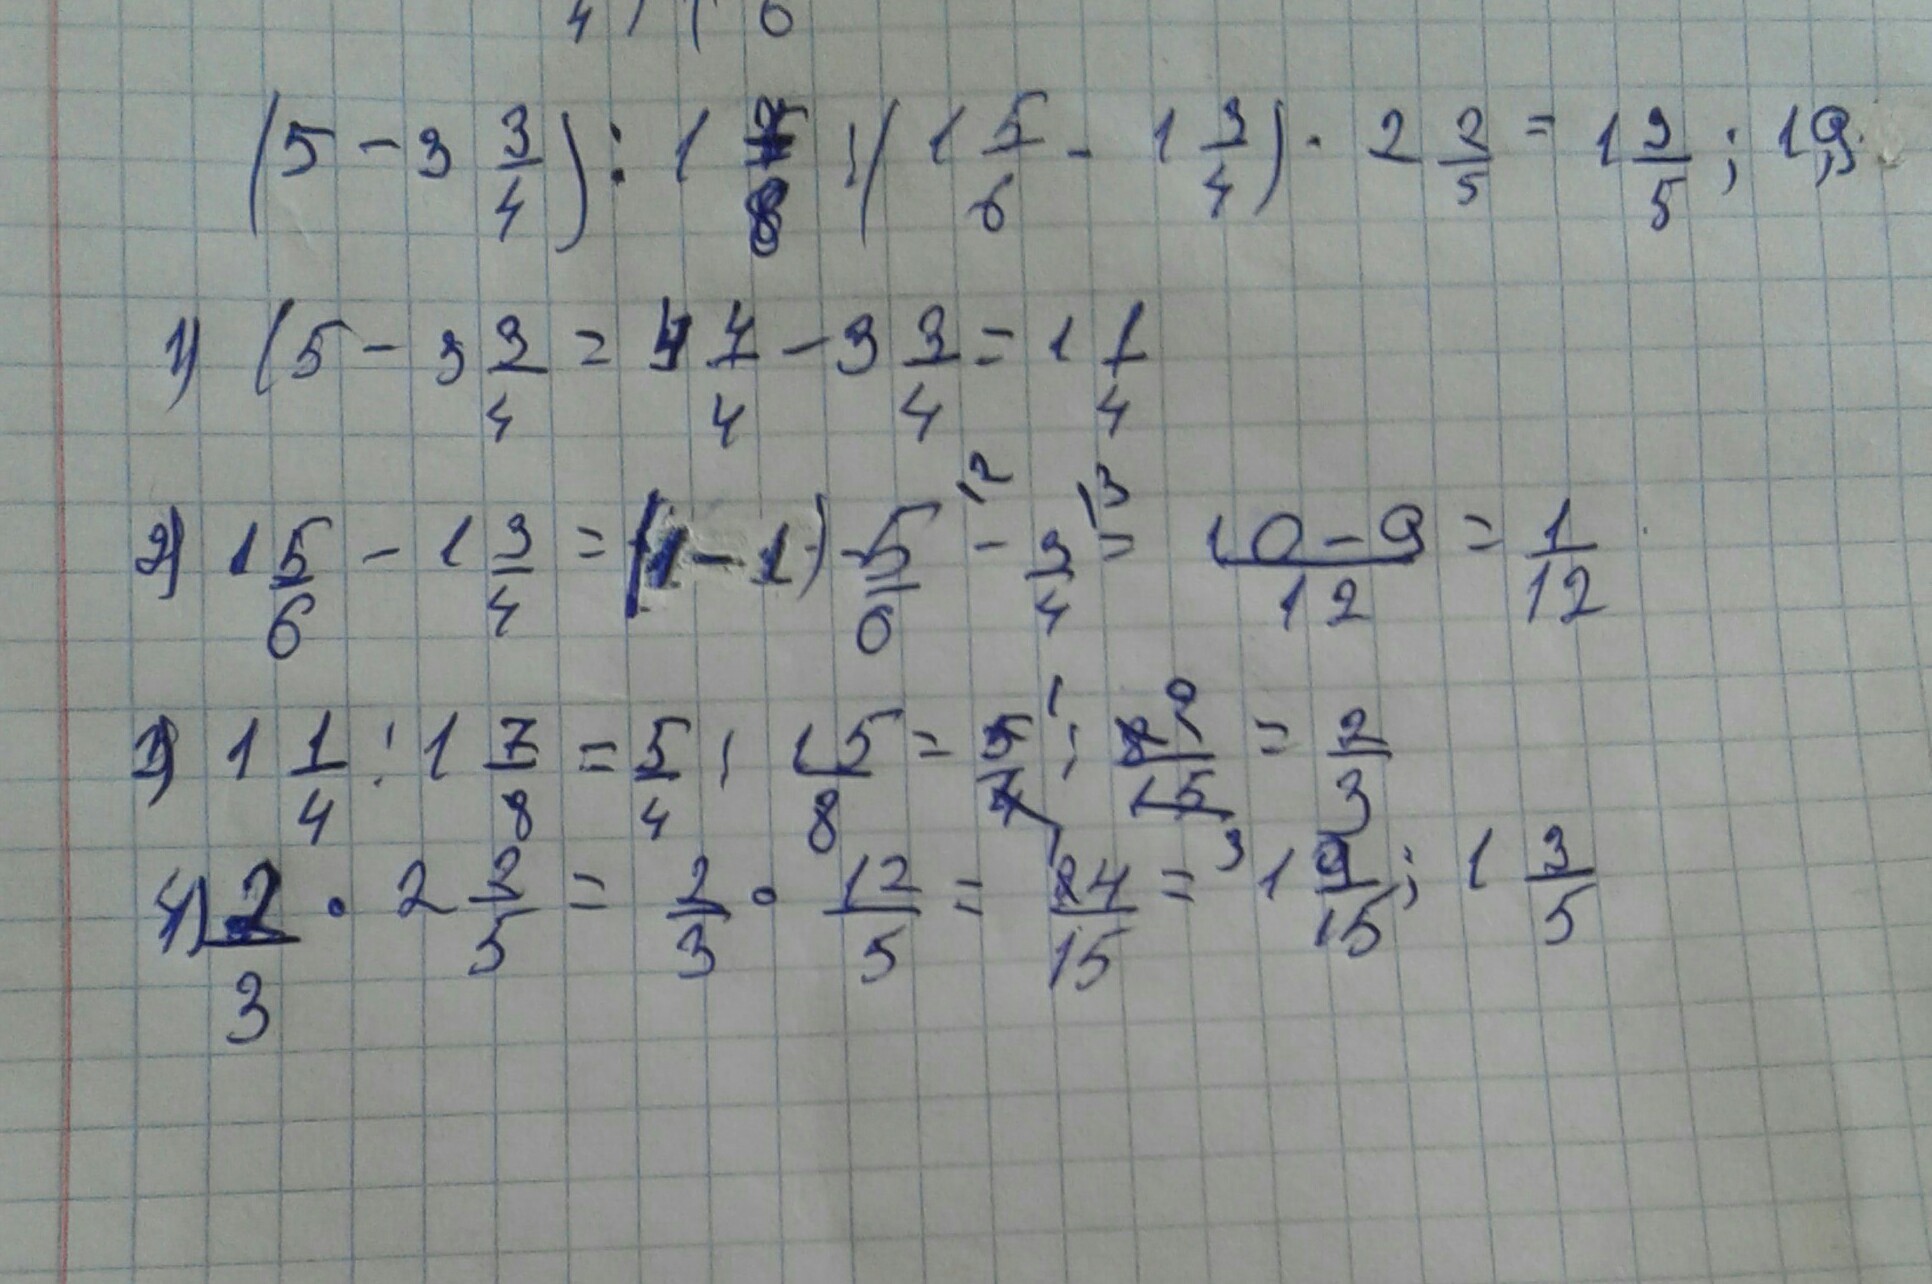 (5 - 3 3/4) : 1 7/8 : (1 5/6 - 1 3/4) · 2 2/5 = 1 3/5 ; 19
1) (5 - 3 3/4 = 4 4/4 - 3 3/4 = 1 1/4
2) 1 5/6 - 1 3/4 = (1 - 1) 5/6 \2 - 3/4 \3 = 10 - 9/12 = 1/12
3) 1 1/4 : 1 7/8 = 5/4 : 15/8 = 5/4 : 8/15 = 2/3
4) 2/3 · 2 2/5 = 2/3 · 12/5 = 24/15 = 1 9/15 ; 1 3/5